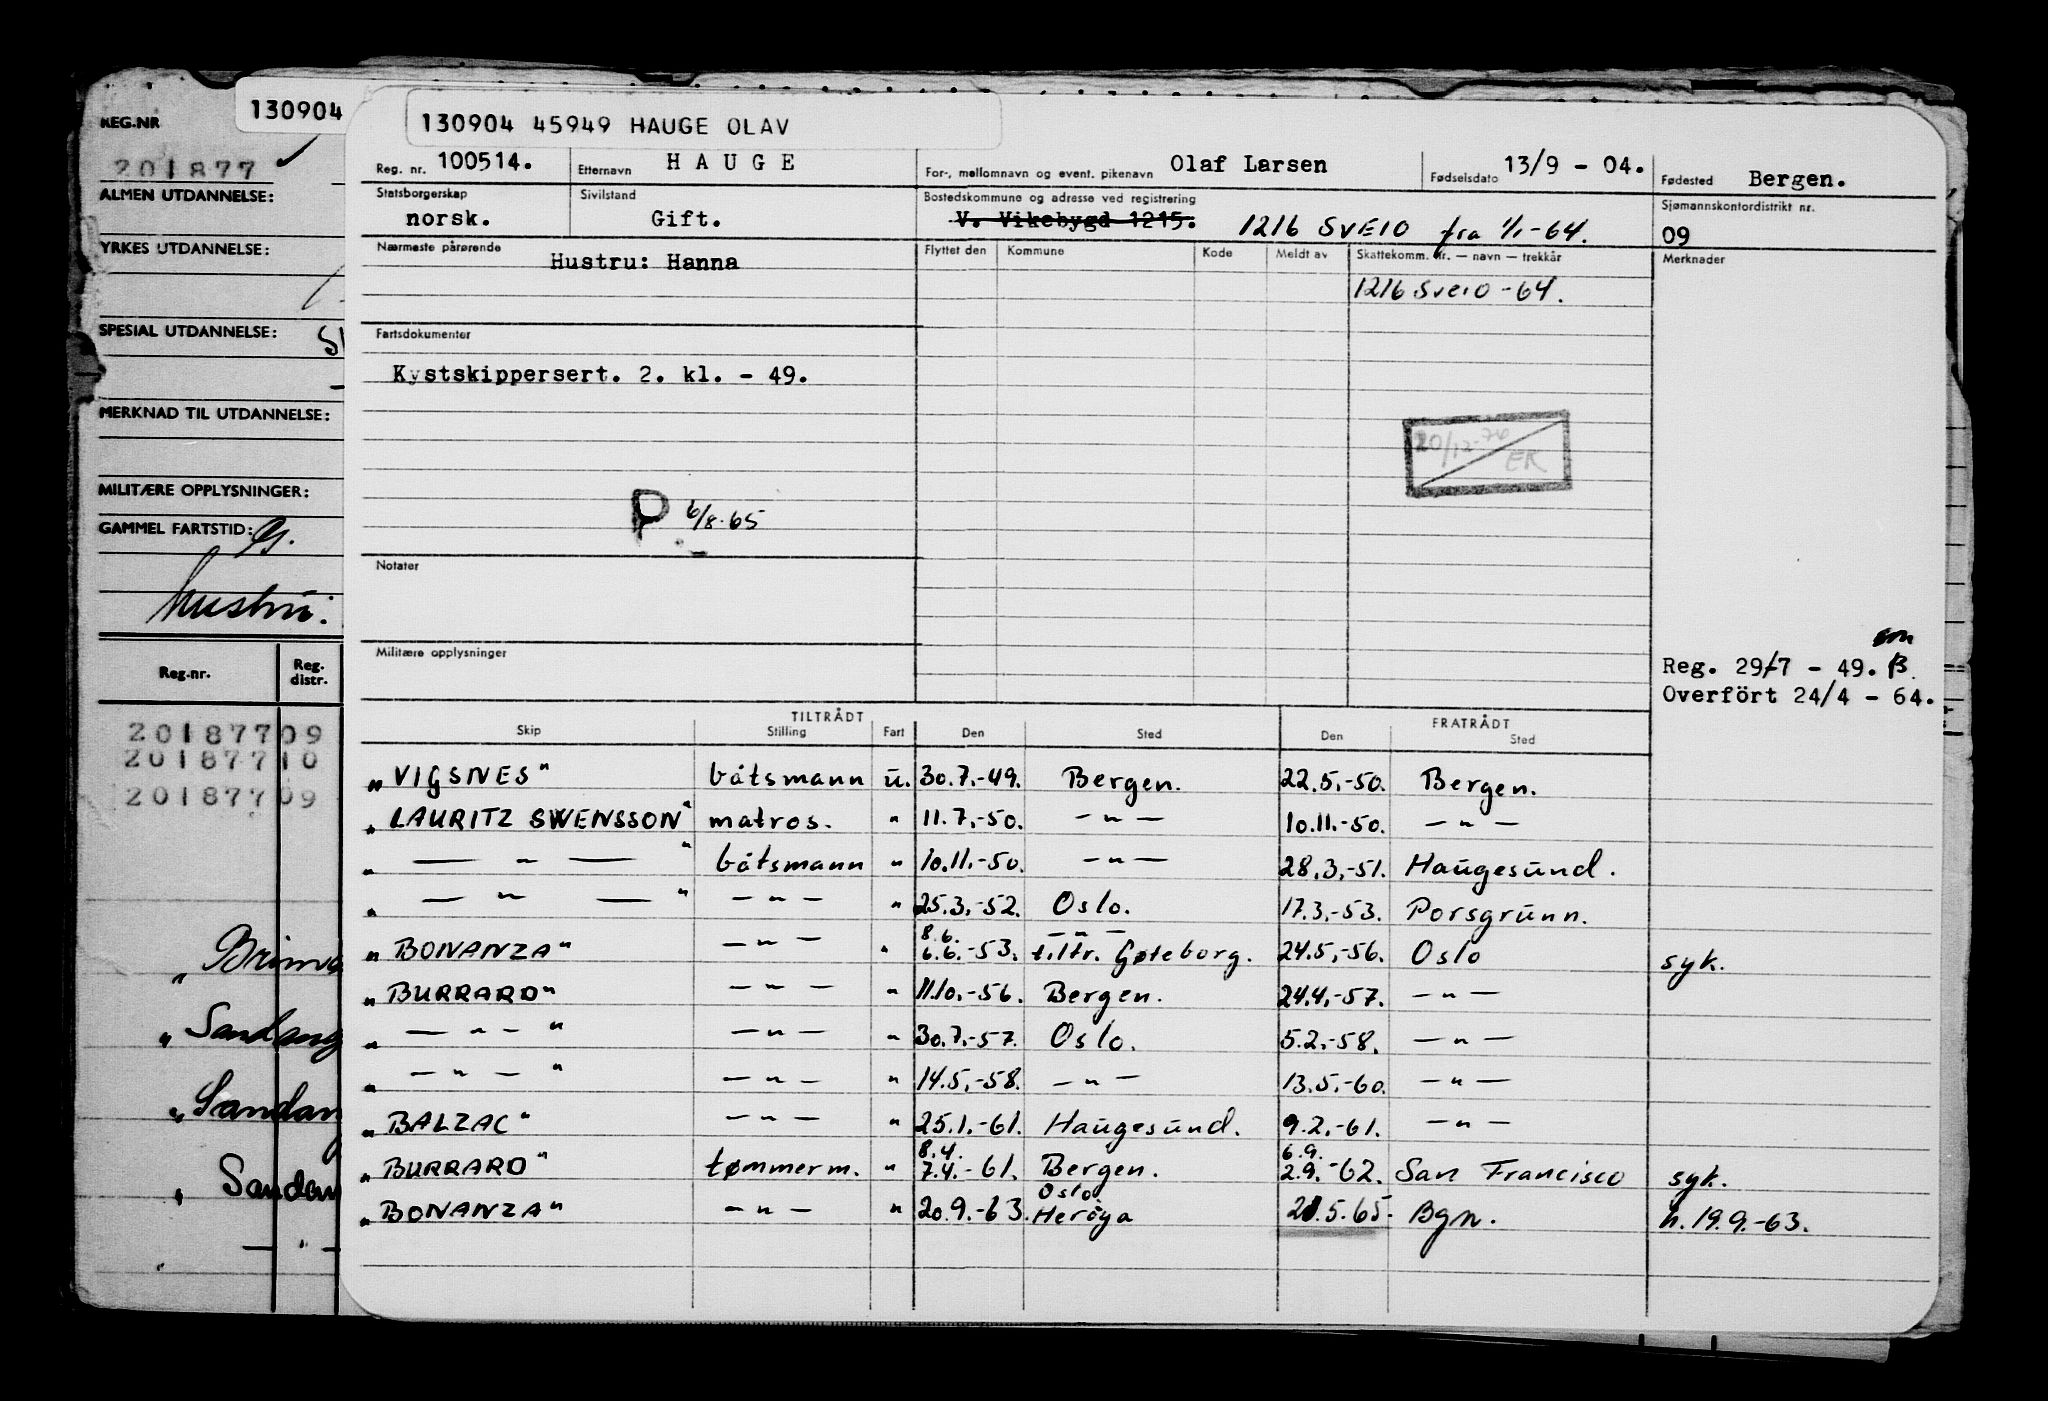 130904
130904 45949 HAUGE OLAV
REG.NR
201877 ✓
ALMEN UTDANNELSE:
YRKES UTDANNELSE:
SPESIAL UTDANNELSE:
MERKNAD TIL UTDANNELSE:
MILITÆRE OPPLYSNINGER:
GAMMEL FARTSTID:
hustru:
Reg.nr. Reg. distr.
20187709
20187710
20187709
Reg. nr. 100514. Etternavn HAUGE For-, mellomnavn og event. pikenavn Olaf Larsen Fødselsdato 13/9 - 04. Fødested Bergen.
Statsborgerskap norsk. Sivilstand Gift. Bostedskommune og adresse ved registrering V. Vikebygd 1215. 1216 SVEIO fra 1/1-64. Sjømannskontordistrikt nr. 09
Nærmeste pårørende Hustru: Hanna Flyttet den Kommune Kode Meldt av Skattekomm. nr. — navn — trekkår Merknader
1216 Sveio -64.
Fartsdokumenter
Kystskippersert. 2. kl. - 49.
20/12-76 EK
P 6/8.65
Notater
Militære opplysninger
Reg. 29/7 - 49.
Overfört 24/4 - 64.
TILTRÅDT FRATRÅDT
Skip Stilling Fart Den Sted Den Sted
„VIGSNES" båtsmann u. 30.7.-49. Bergen. 22.5.-50. Bergen.
„LAURITZ SWENSSON" matros. " 11.7.-50. — " — 10.11.-50. — " —
„ — " — " båtsmann " 10.11.-50. — " — 28.3.-51. Haugesund.
„ — " — " — " — " 25.3.-52. Oslo. 17.3.-53. Porsgrunn.
8.6. — " —
„BONANZA" — " — " 6.6.-53. tiltr. Gøteborg. 24.5.-56. Oslo syk.
„BURRARD" — " — " 11.10.-56. Bergen. 24.4.-57. — " —
„ — " — " — " — " 30.7.-57. Oslo. 5.2.-58. — " —
„ — " — " — " — " 14.5.-58. — " — 13.5.-60. — " —
„BALZAC" — " — " 25.1.-61. Haugesund. 9.2.-61. — " —
8.4. 6.9.
„BURRARD" tømmerm. " 7.4.-61. Bergen. 2.9.-62. San Francisco syk.
Oslo
„BONANZA" — " — " 20.9.-63. Herøya 21.5.65. Bgn. h. 19.9.-63.